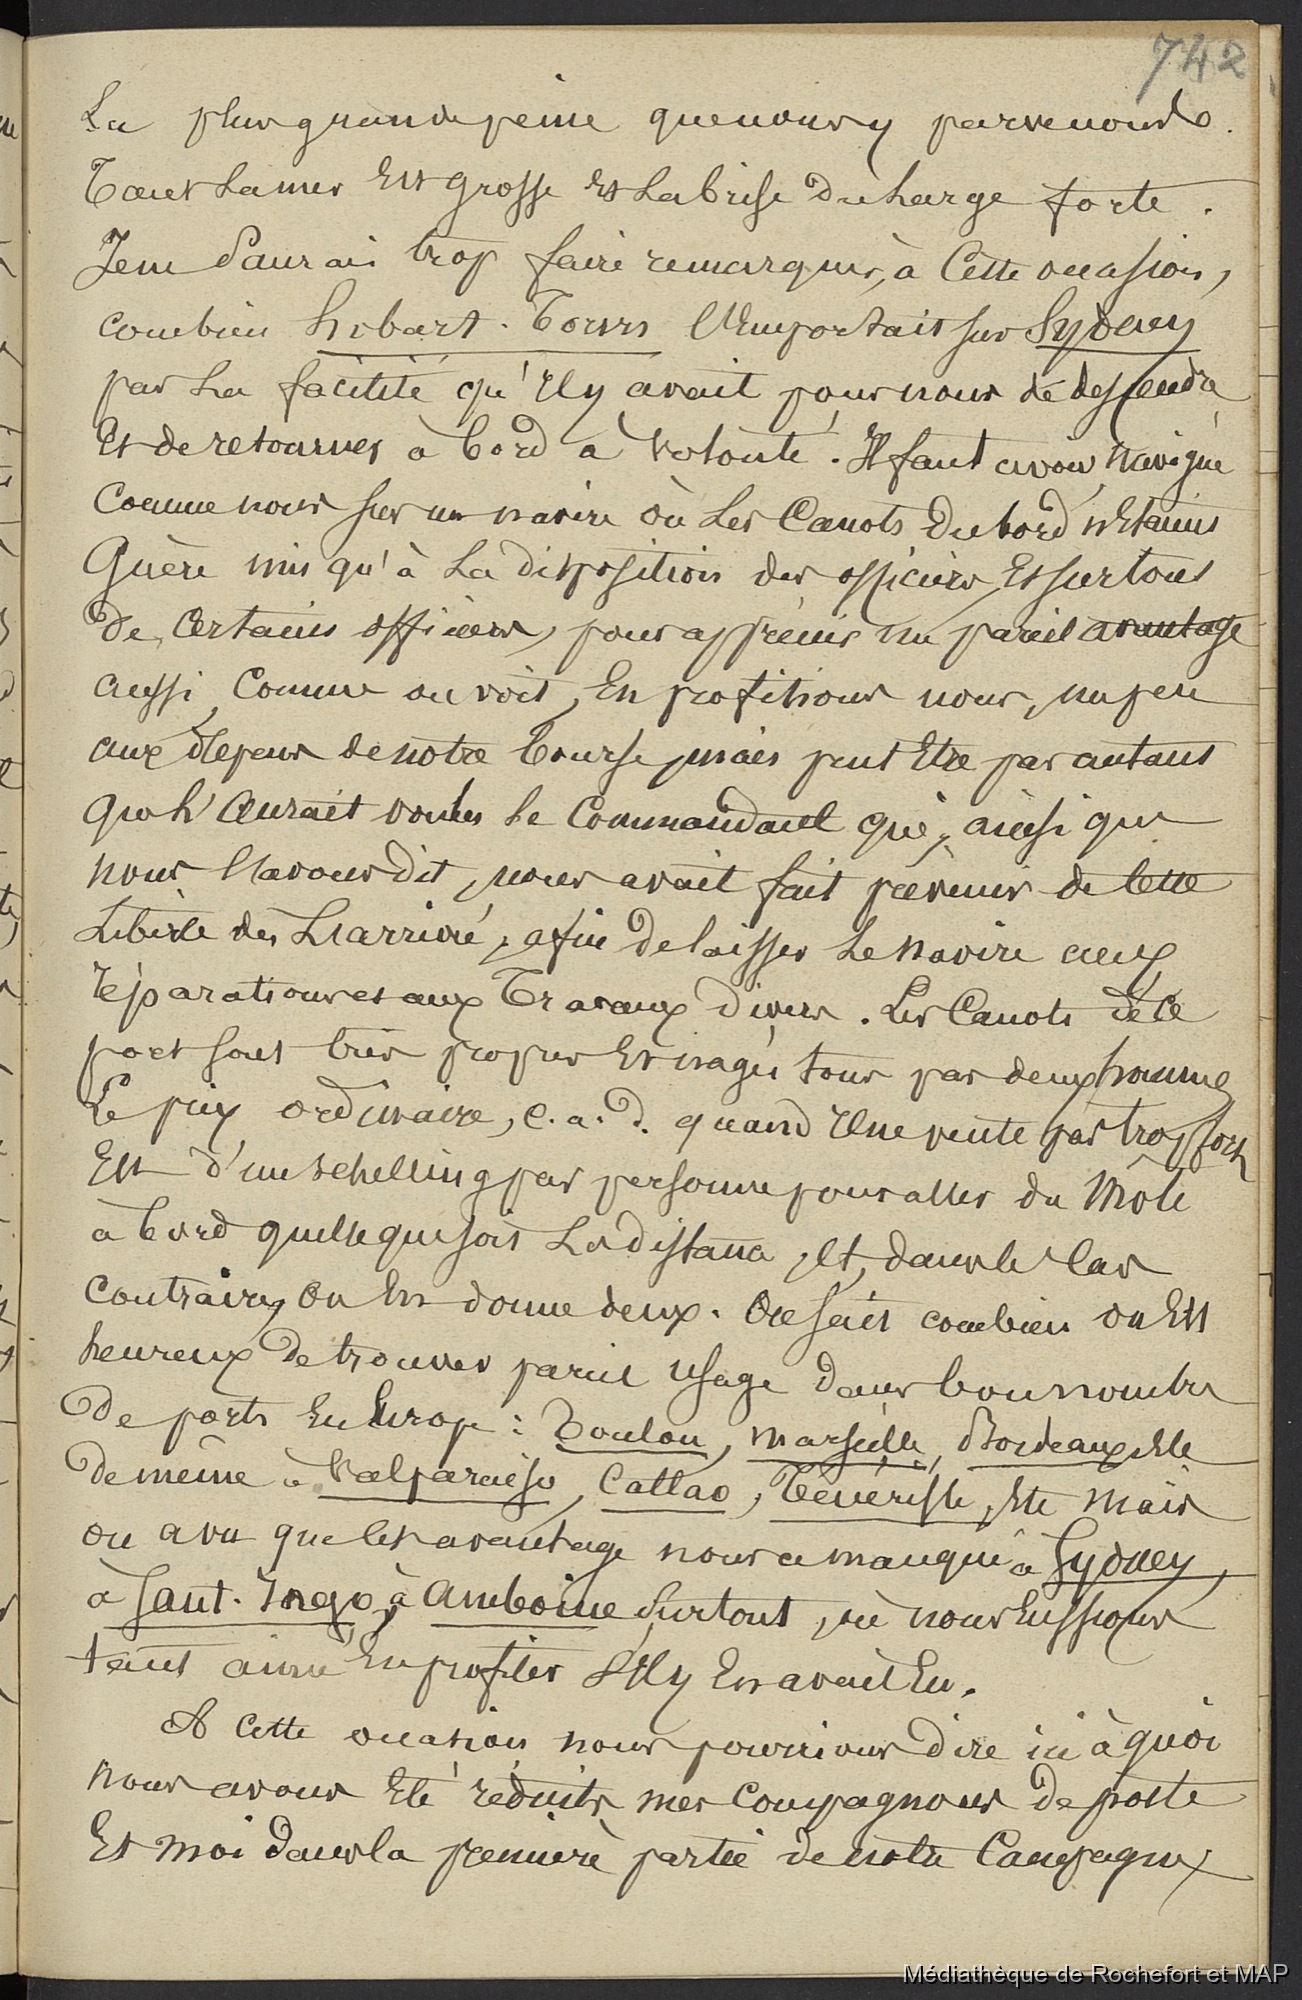 742
La plus grande peine que nous y parvenons.
Tant La mer Est grosse Et La brise Du Large forte.
Je ne Saurais trop faire remarquer, à Cette occasion,
combien Hobart-Town L'Emportait sur Sydney
par La facilité qu'Il y avait pour nous de descendre
Et de retourner à bord à volonté. Il faut avoir navigué
Comme nous sur un navire où Les Canots Du bord n'Etaient
Guère mis qu'à La disposition des officiers, Et surtout
De Certains officiers, pour apprécier un pareil avantage
aussi, Comme on voit, En profitions nous, un peu
aux dépens de notre bourse, mais peut Etre pas autant
que L'aurait voulu Le Commandant qui, ainsi que
nous L'avons dit, nous avait fait prévenir de Cette
Liberté dès L'arrivée, afin De laisser Le navire aux
réparations et aux Travaux Divers. Les Canots de Ce
port sont très propres Et nagés tous par deux hommes
Le prix ordinaire, c.a.d. quand Il ne vente pas trop fort
Est d'un schelling par personne pour aller du Môle
à bord quelle que soit La distance, Et, dans le Cas
Contraire, on En donne deux. On sait combien on Est
heureux De trouver pareil usage dans bon nombre
De ports En Europe : Toulon, Marseille, Bordeaux, Ete
De même à Valparaiso, Callao, Ténériffe, Ete Mais
on a vu que Cet avantage nous a manqué à Sydney,
à Sant-Yago, à Amboine Surtout, où nous Eussions
tant aimé En profiter S'Il y En avait Eu.
A Cette occasion nous pourrions Dire ici à quoi
nous avons Eté réduits, mes Compagnons De poste
Et moi dans la première partie de notre Campagne,
Médiathèque de Rochefort et MAP